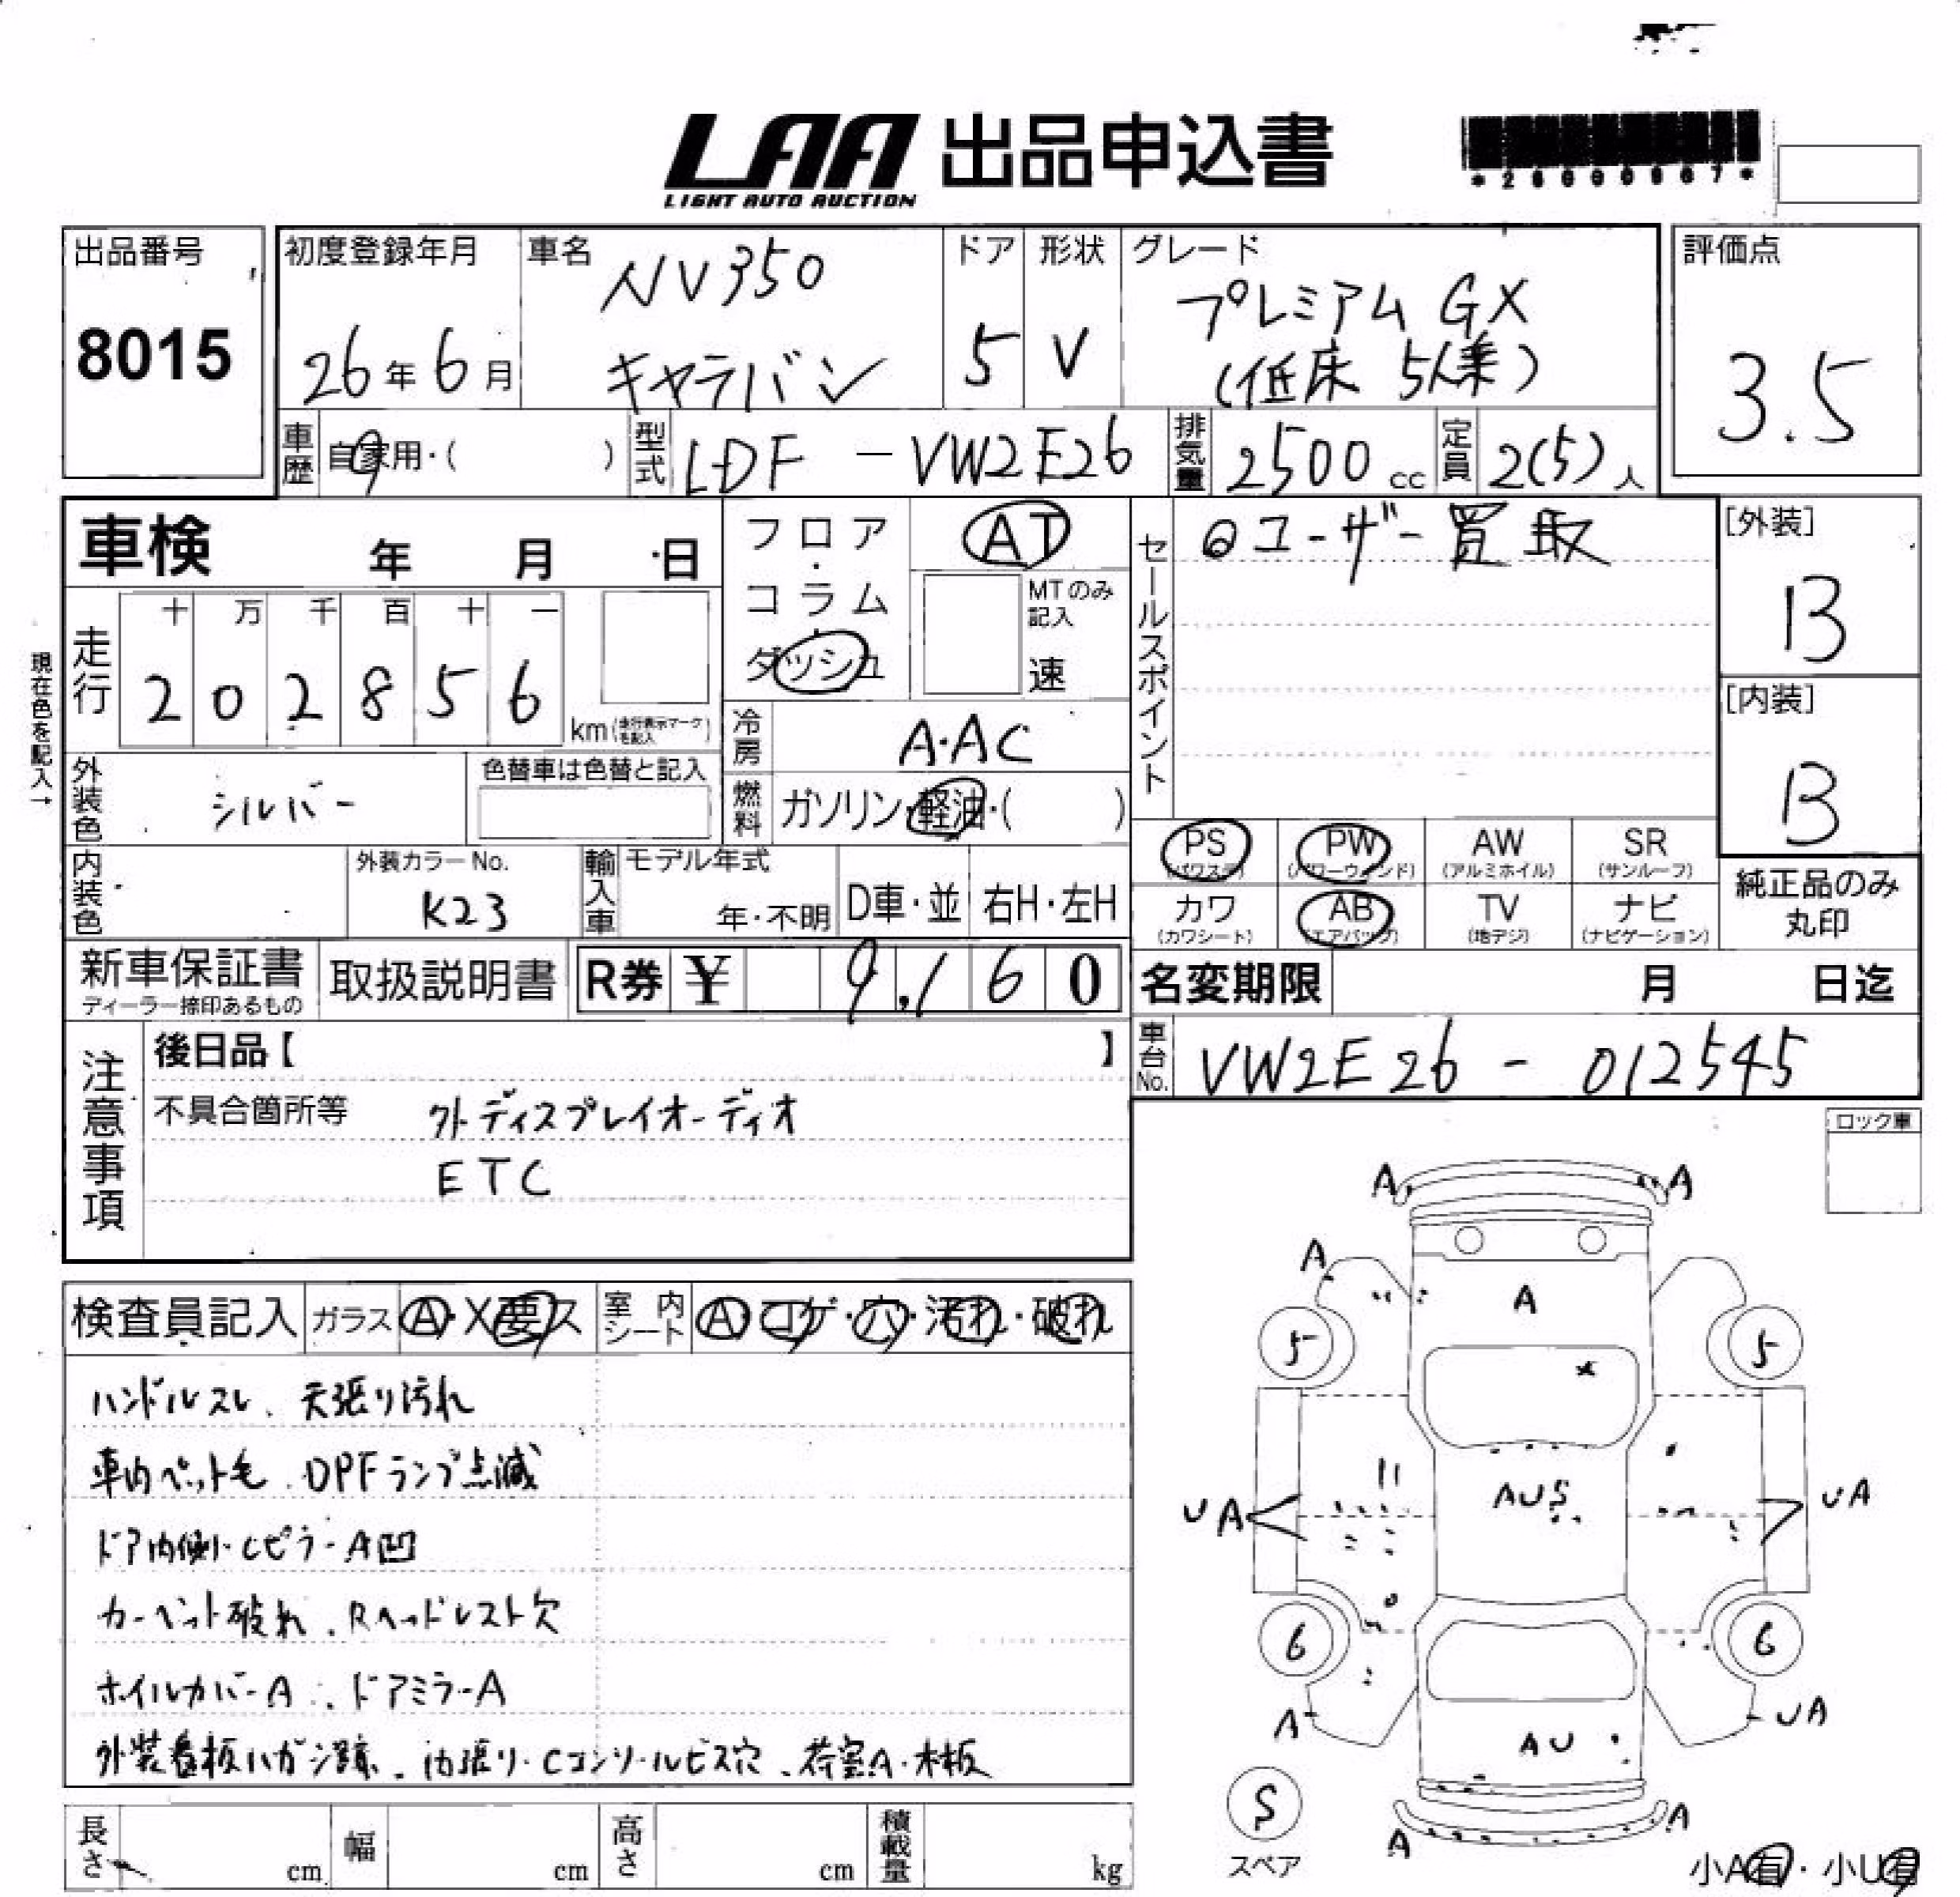 LAA 出品申込書
LIGHT AUTO AUCTION
出品番号
8015
初度登録年月
26年6月
車名
NV350
キャラバン
ドア
5
形状
V
グレード
プレミアム GX
(低床 5人乗)
評価点
3.5
車歴
自家用・( )
型式
LDF - VW2E26
排気量
2500 cc
定員
2(5)人
車検 年 月 日
現在色を記入→
走行
十 万 千 百 十 一
2 0 2 8 5 6
km(走行表示マークを記入)
フロア・コラム・ダッシュ
AT
MTのみ
記入
速
冷房
A・AC
燃料
ガソリン・軽油・( )
外装色
シルバー
色替車は色替と記入
内装色
外装カラーNo.
K23
輸入車
モデル年式
年・不明
D車・並
右H・左H
セールスポイント
◎ユーザー買取
[外装]
B
[内装]
B
PS (パワステ)
PW (パワーウィンド)
AW (アルミホイル)
SR (サンルーフ)
カワ (カワシート)
AB (エアバッグ)
TV (地デジ)
ナビ (ナビゲーション)
純正品のみ
丸印
新車保証書
ディーラー捺印あるもの
取扱説明書
R券 ¥ 9,160
名変期限 月 日迄
車台No.
VW2E26 - 012545
注意事項
後日品【 】
不具合箇所等 外ディスプレイオーディオ
ETC
ロック車
検査員記入
ガラス A・X要ス
室内シート A・コゲ・穴・汚れ・破れ
ハンドルスレ、天張り汚れ
車内ペット毛、DPFランプ点滅
ドア内側・CピラーA凹
カーペット破れ、Rヘッドレスト欠
ホイルカバーA、ドアミラーA
外装看板ハガシ跡、内張り・Cコンソールビス穴、荷室A・木板
A A
A A
5 5
UA AUS UA
6 6
A AU UA
S
スペア
A A
小A有・小U有
長さ cm
幅 cm
高さ cm
積載量 kg